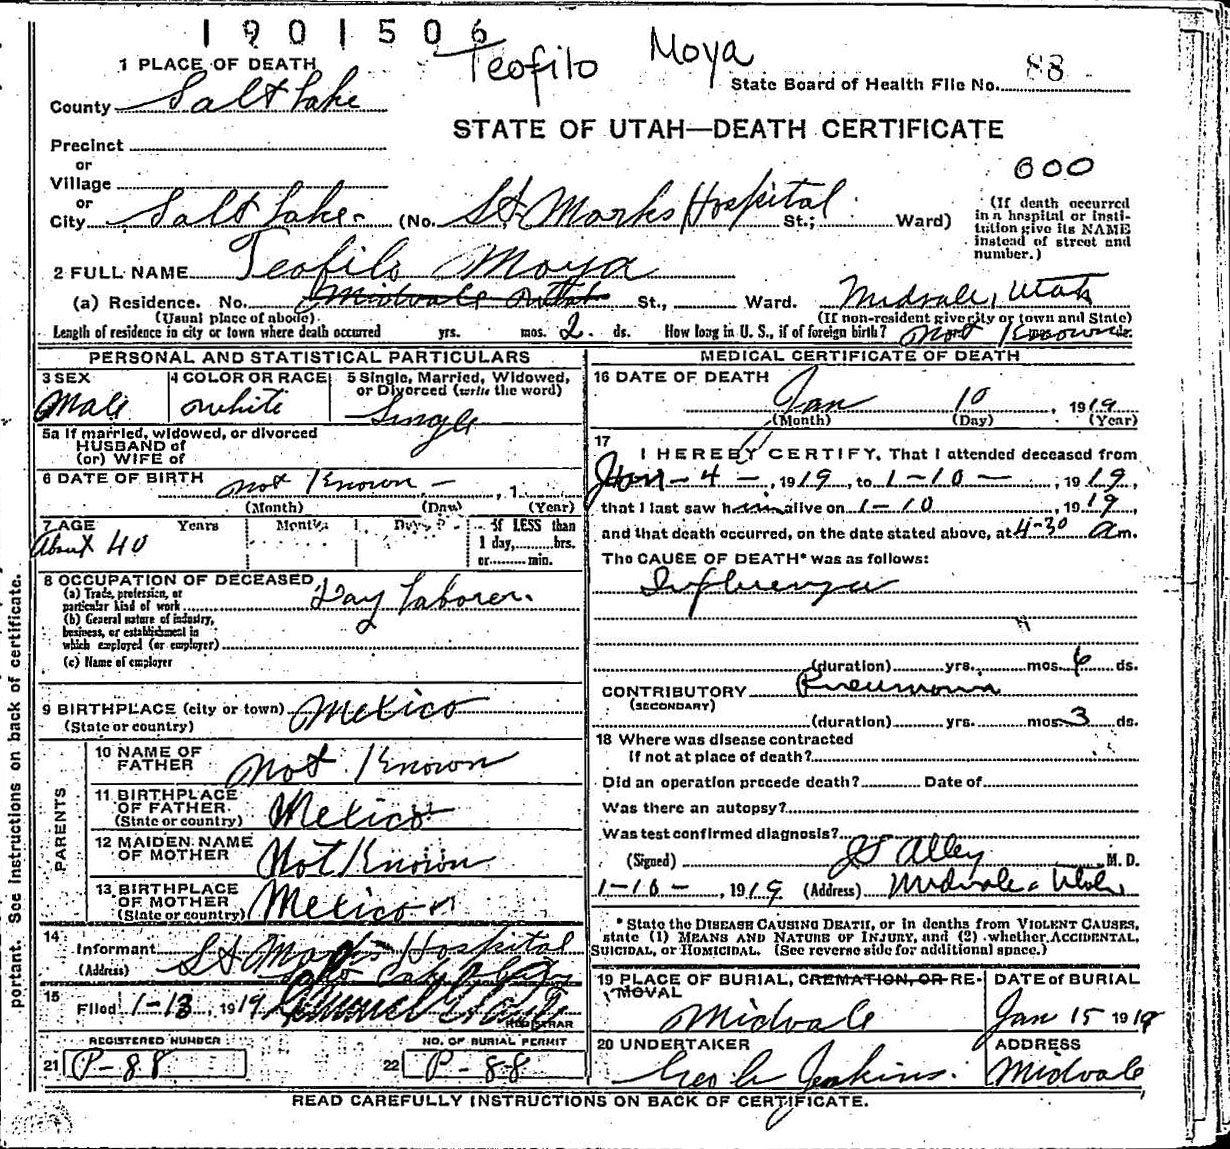 1901506
Teofilo Moya
1 PLACE OF DEATH
State Board of Health File No. 88
County Salt Lake
STATE OF UTAH—DEATH CERTIFICATE
Precinct
or
Village
000
or
City Salt Lake (No. St Marks Hospital St.; Ward)
(If death occurred in a hospital or institution give its NAME instead of street and number.)
2 FULL NAME Teofilo Moya
(a) Residence. No. Midvale Utah St., Ward. Midvale, Utah
(Usual place of abode) (If non-resident give city or town and State)
Length of residence in city or town where death occurred yrs. mos. 2 ds. How long in U. S., if of foreign birth? Not Known
PERSONAL AND STATISTICAL PARTICULARS
3 SEX
Male
4 COLOR OR RACE
White
5 Single, Married, Widowed,
or Divorced (write the word)
Single
5a If married, widowed, or divorced
HUSBAND of
(or) WIFE of
6 DATE OF BIRTH Not Known , 1
(Month) (Day) (Year)
7 AGE Years Months Days If LESS than
About 40 1 day, hrs.
or min.
8 OCCUPATION OF DECEASED
(a) Trade, profession, or
particular kind of work Day Laborer.
(b) General nature of industry,
business, or establishment in
which employed (or employer)
(c) Name of employer
9 BIRTHPLACE (city or town) Mexico
(State or country)
PARENTS
10 NAME OF
FATHER Not Known
11 BIRTHPLACE
OF FATHER
(State or country) Mexico
12 MAIDEN NAME
OF MOTHER Not Known
13 BIRTHPLACE
OF MOTHER
(State or country) Mexico
14
Informant St Marks Hospital
(Address)
15
Filed 1-13, 1919
REGISTRAR
REGISTERED NUMBER
21 P-88
NO. OF BURIAL PERMIT
22 P-88
MEDICAL CERTIFICATE OF DEATH
16 DATE OF DEATH
Jan 10, 1919
(Month) (Day) (Year)
17
I HEREBY CERTIFY, That I attended deceased from
Jan - 4 -, 1919, to 1-10 -, 1919,
that I last saw him alive on 1-10, 1919,
and that death occurred, on the date stated above, at 4-30 a m.
The CAUSE OF DEATH* was as follows:
Influenza
(duration) yrs. mos. 6 ds.
CONTRIBUTORY Pneumonia
(SECONDARY)
(duration) yrs. mos. 3 ds.
18 Where was disease contracted
If not at place of death?
Did an operation precede death? Date of
Was there an autopsy?
Was test confirmed diagnosis?
(Signed) Alley M. D.
1-10-, 1919 (Address) Midvale - Utah
*State the DISEASE CAUSING DEATH, or in deaths from VIOLENT CAUSES,
state (1) MEANS AND NATURE OF INJURY, and (2) whether ACCIDENTAL,
SUICIDAL, or HOMICIDAL. (See reverse side for additional space.)
19 PLACE OF BURIAL, CREMATION, OR RE-
MOVAL
Midvale
DATE of BURIAL
Jan 15 1919
20 UNDERTAKER
Geo Jenkins.
ADDRESS
Midvale
READ CAREFULLY INSTRUCTIONS ON BACK OF CERTIFICATE.
portant. See instructions on back of certificate.